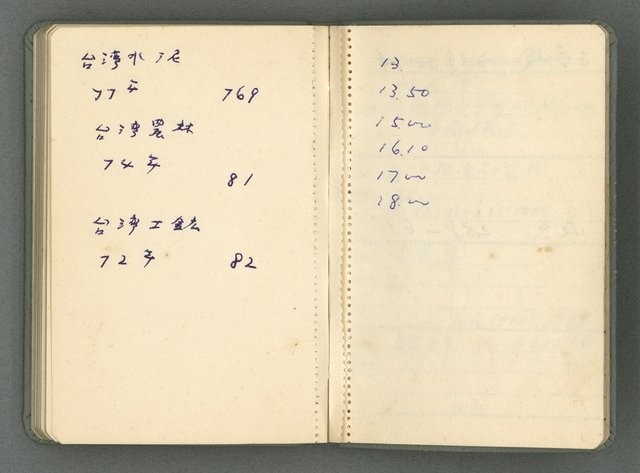 台湾水泥
77年 769
台湾農林
74年
81
台湾工鉱
72年 82
13.
13.50
15.00
16.10
17.00
18.00